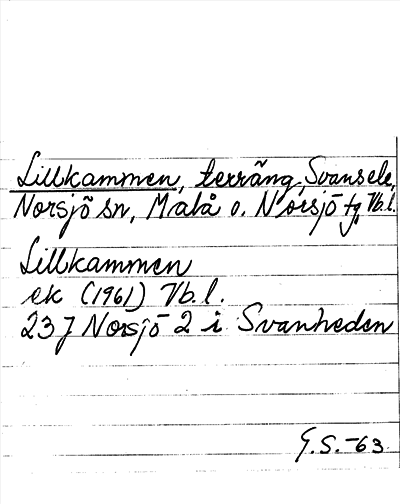 Lillkammen, terräng, Svansele,
Norsjö sn, Malå o. Norsjö tg, Vb.l.
Lillkammen
ek (1961) Vb.l.
23 J Norsjö 2 i Svanheden
G.S.-63